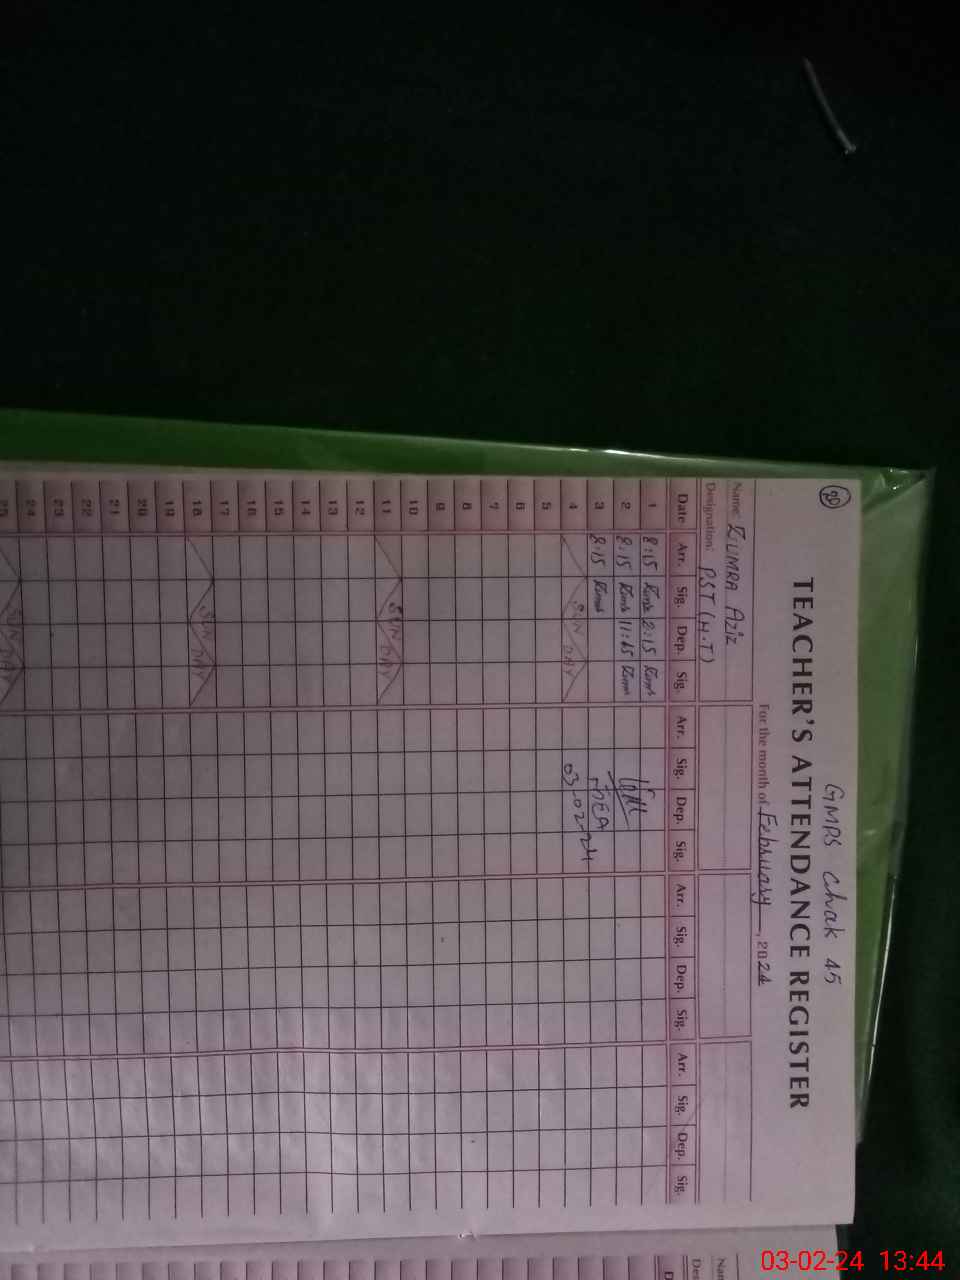 20
GMPS Chak 45
TEACHER'S ATTENDANCE REGISTER
For the month of February, 2024
Name: ZUMRA Aziz
Designation: PST (H.T)
Date Arr. Sig. Dep. Sig. Arr. Sig. Dep. Sig. Arr. Sig. Dep. Sig. Arr. Sig. Dep. Sig.
1 8:15 2:15
2 8:15 11:45
3 8:15
4 SUNDAY
5
6
7
8
9
10
11 SUNDAY
12
13
14
15
16
17
18 SUNDAY
19
20
21
22
23
24
25 SUNDAY
03-02-24
03-02-24 13:44